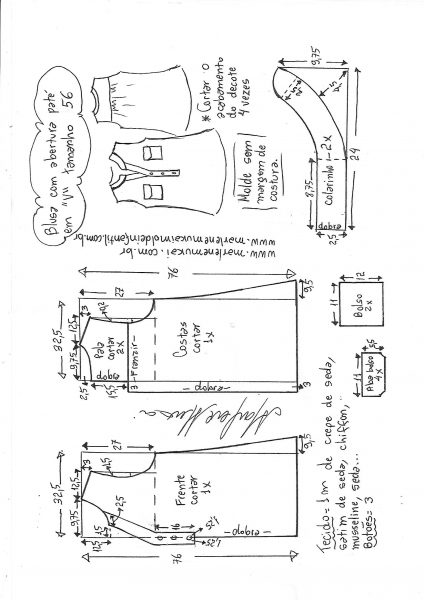 Blusa com abertura patê
em "V" tamanho
56
* Cortar o
acabamento
do decote
4 vezes
Molde sem
margem de
costura.
www.marlenemukai.com.br
www.marlenemukaimoldeinfantil.com.br
9,75
4,5
24
Colarinho - 2x
8,75
dobra
2,5
76
27
9,5
32,5
12,5
3
9,75
2,5
Pala
cortar
2x
dobra
15,5
3 - Franzir -
Costas
cortar
1x
- dobra -
3
12
11
Bolso
2x
5,5
11
Aba bolso
4x
27
9,5
32,5
12,5
3
1,5
9,75
2,5
1,5
12,5
Frente
cortar
1x
16
1,25
1,25
- dobra -
76
Tecido = 1 m de crepe de seda,
satim de seda, chiffon,
musseline, seda...
Botões = 3